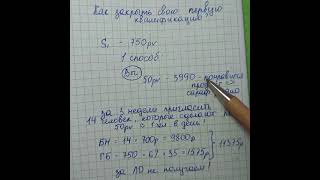 Как закрыть свою первую
квалификацию
S₁ - 750pv
1 способ
Вп.
50pv - 3990 - понравился
за 3 недели пригласить
14 человек, которое сделают по
50pv = 1 чел в день!
БН = 14 × 700р = 9800р
ГБ = 750 × 6% × 35 = 1575р
11375р
за ЛО не получаем!